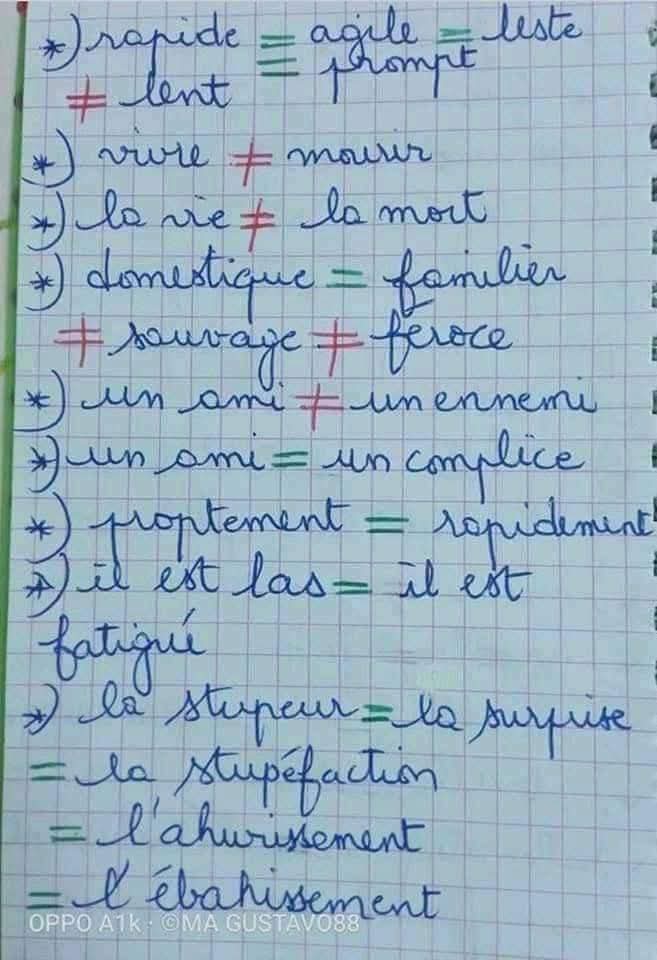 *) rapide = agile = leste
= prompt
≠ lent
*) vivre ≠ mourir
*) la vie ≠ la mort
*) domestique = familier
≠ sauvage ≠ féroce
*) un ami ≠ un ennemi
*) un ami = un complice
*) proptement = rapidement
*) il est las = il est
fatigué
*) la stupeur = la surprise
= la stupéfaction
= l'ahurissement
= l'ébahissement
OPPO A1k · ©MA GUSTAVO88